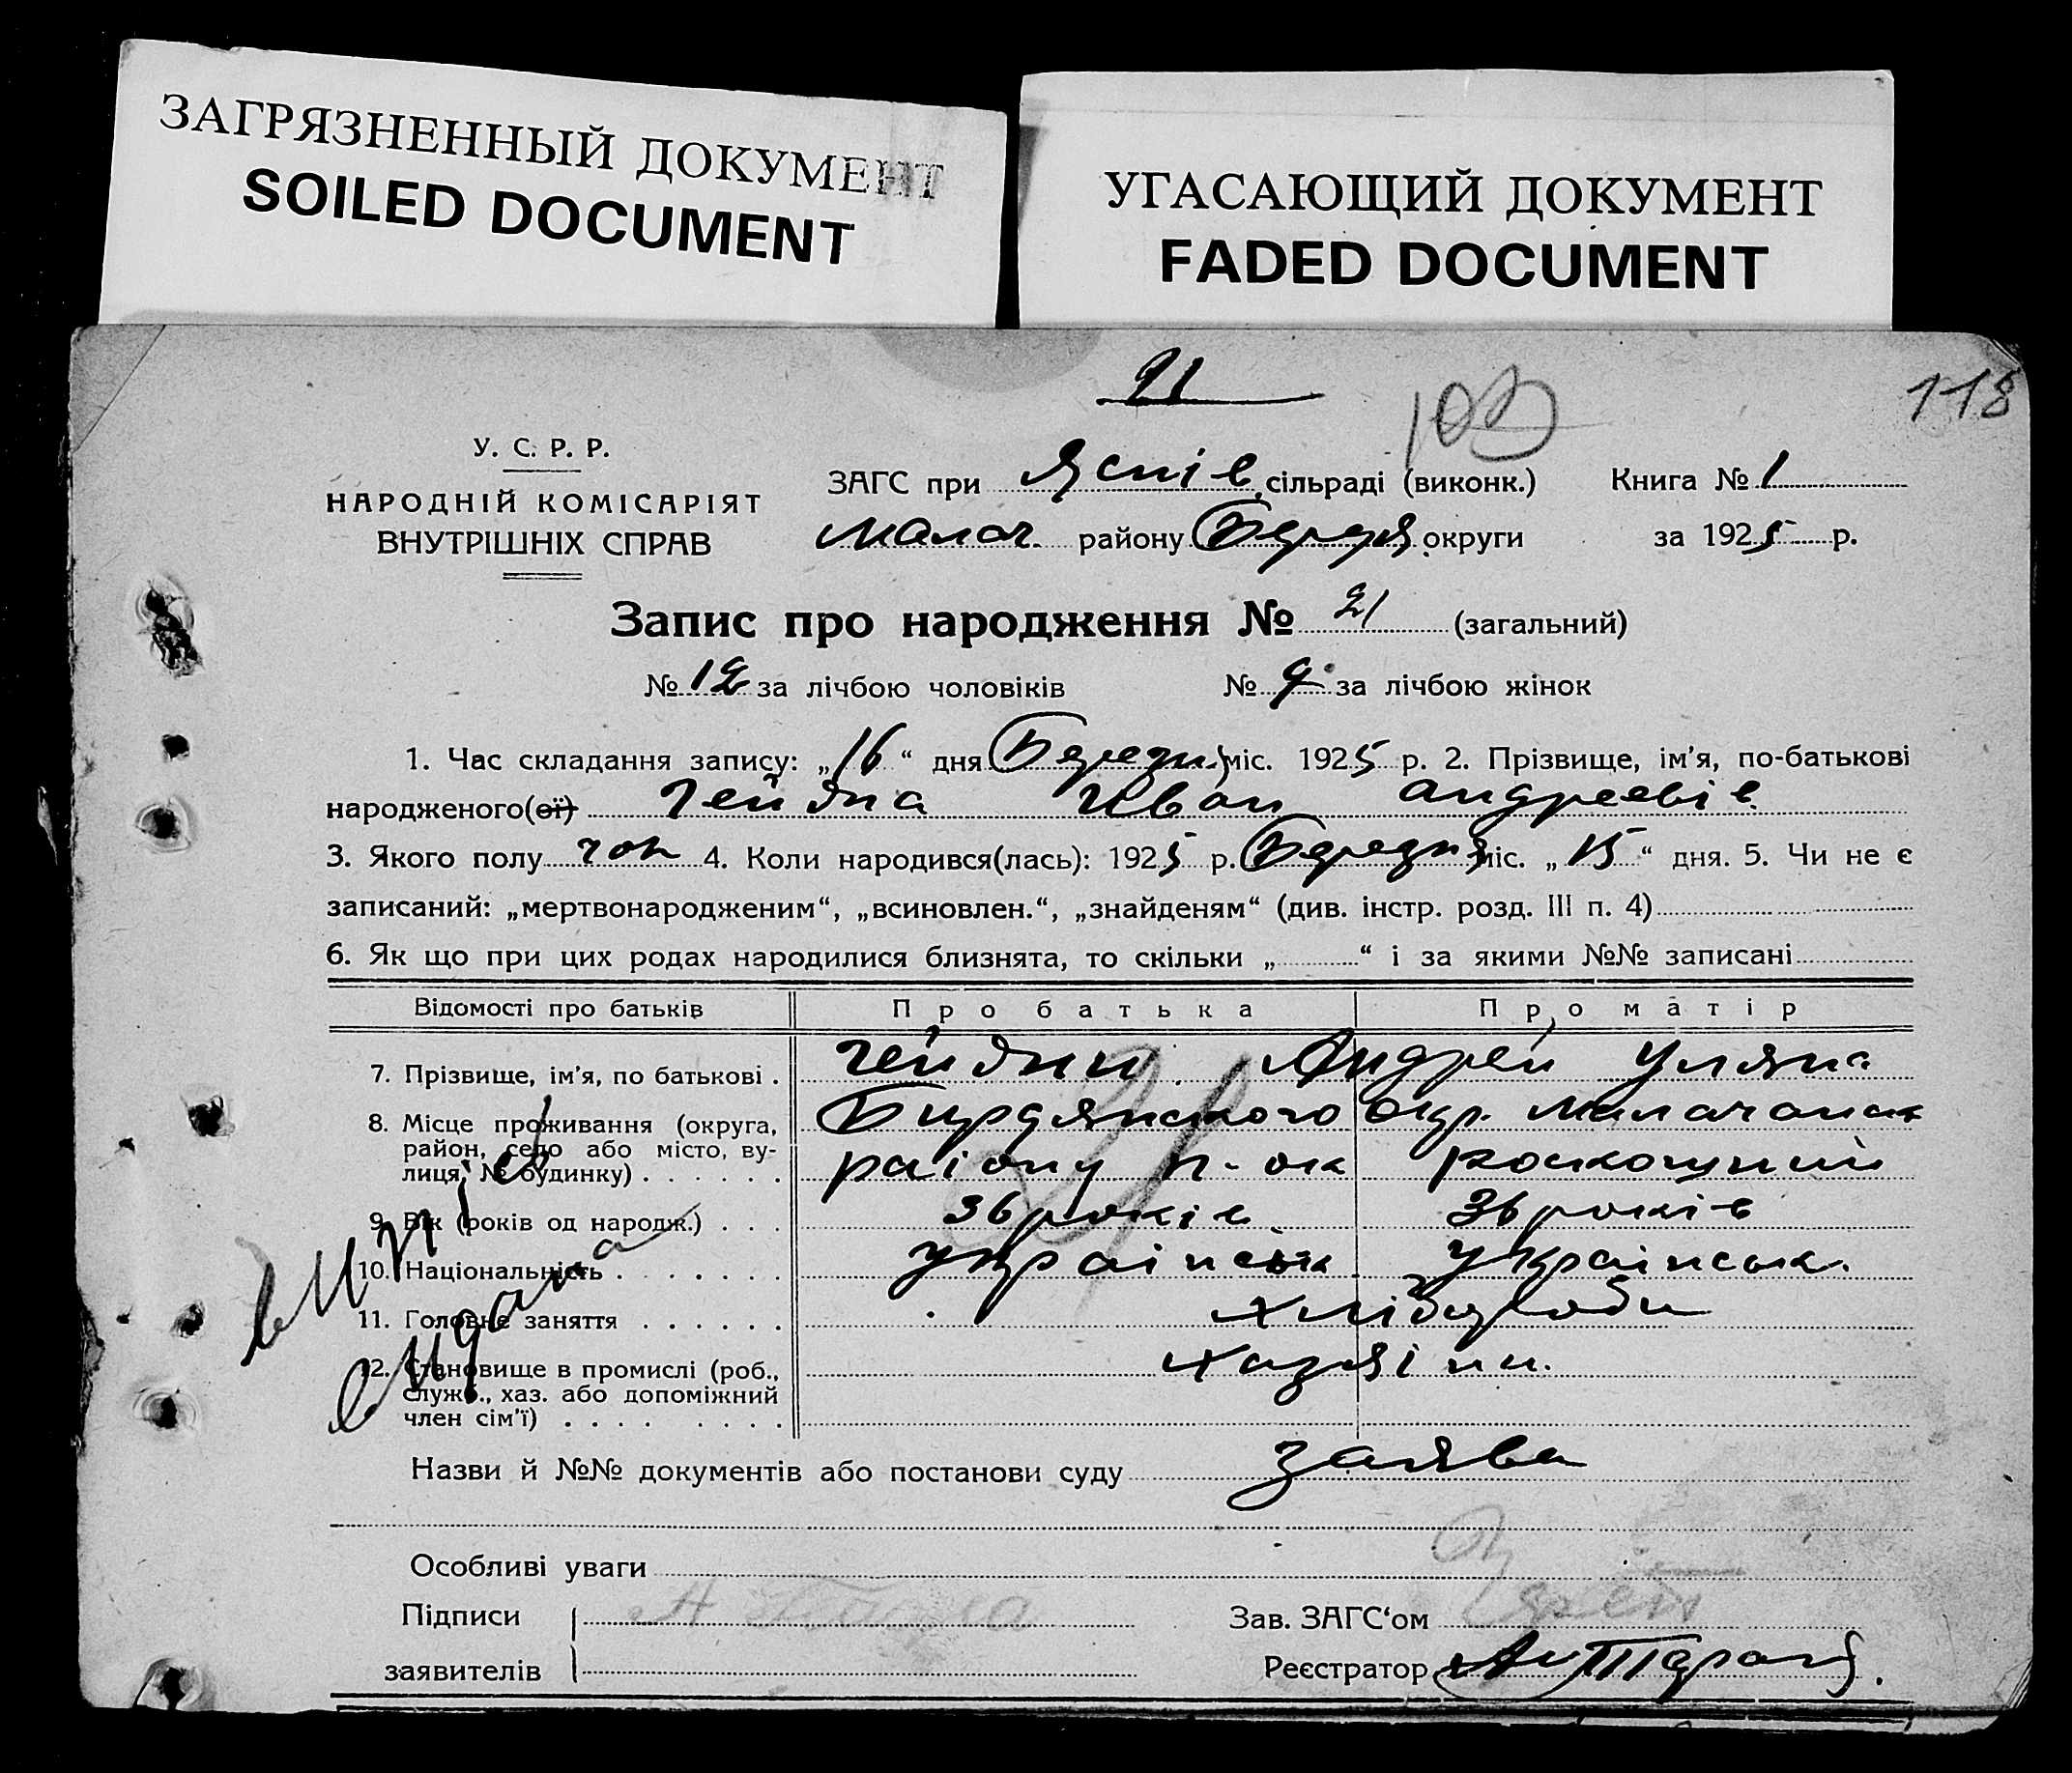 ЗАГРЯЗНЕННЫЙ ДОКУМЕНТ
SOILED DOCUMENT
УГАСАЮЩИЙ ДОКУМЕНТ
FADED DOCUMENT
21
118
У. С. Р. Р.
НАРОДНІЙ КОМІСАРІЯТ
ВНУТРІШНІХ СПРАВ
ЗАГС при сільраді (виконк.) Книга № 1
Молоч. району Бердя. округи за 1925 р.
Запис про народження № 21 (загальний)
№ 12 за лічбою чоловіків № 9 за лічбою жінок
1. Час складання запису: „16“ дня Березня міс. 1925 р. 2. Прізвище, ім'я, по-батькові
народженого(ої) Иван Андреевів
3. Якого полу чол 4. Коли народився(лась): 1925 р. Березня міс. „15“ дня. 5. Чи не є
записаний: „мертвонародженим“, „всиновлен.“, „знайденям“ (див. інстр. розд. III п. 4)
6. Як що при цих родах народилися близнята, то скільки „ “ і за якими №№ записані
Відомості про батьків Про батька Про матір
7. Прізвище, ім'я, по батькові . Андрей Уляна
8. Місце проживання (округа, район, село або місто, вулиця, № будинку) . . . . . . Бирдянського окр.
раіону
9. Вік (років од народж.) . . . 36 років 36 років
10. Національність . . . . . . . україньск українськ.
11. Головне заняття . . . . . . хлібороби
12. Становище в промислі (роб., служб., хаз. або допоміжний член сім'ї) . . . . . . . . хазяіни.
Назви й №№ документів або постанови суду заява
Особливі уваги
Підписи
заявителів
Зав. ЗАГС‘ом
Реєстратор